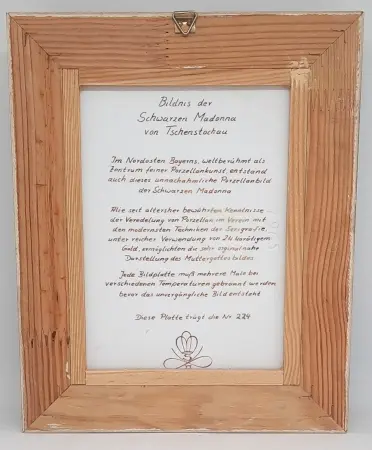 Bildnis der
Schwarzen Madonna
von Tschenstochau
Im Nordosten Bayerns, weltberühmt als
Zentrum feiner Porzellankunst, entstand
auch dieses unnachahmliche Porzellanbild
der Schwarzen Madonna
Die seit altersher bewährten Kenntnisse
der Veredelung von Porzellan im Verein mit
den modernsten Techniken der Serigrafie,
unter reicher Verwendung von 24 karätigem
Gold, ermöglichten die sehr originalnahe
Darstellung des Muttergottesbildes
Jede Bildplatte muß mehrere Male bei
verschiedenen Temperaturen gebrannt werden
bevor das unvergängliche Bild entsteht
Diese Platte trägt die Nr. 224